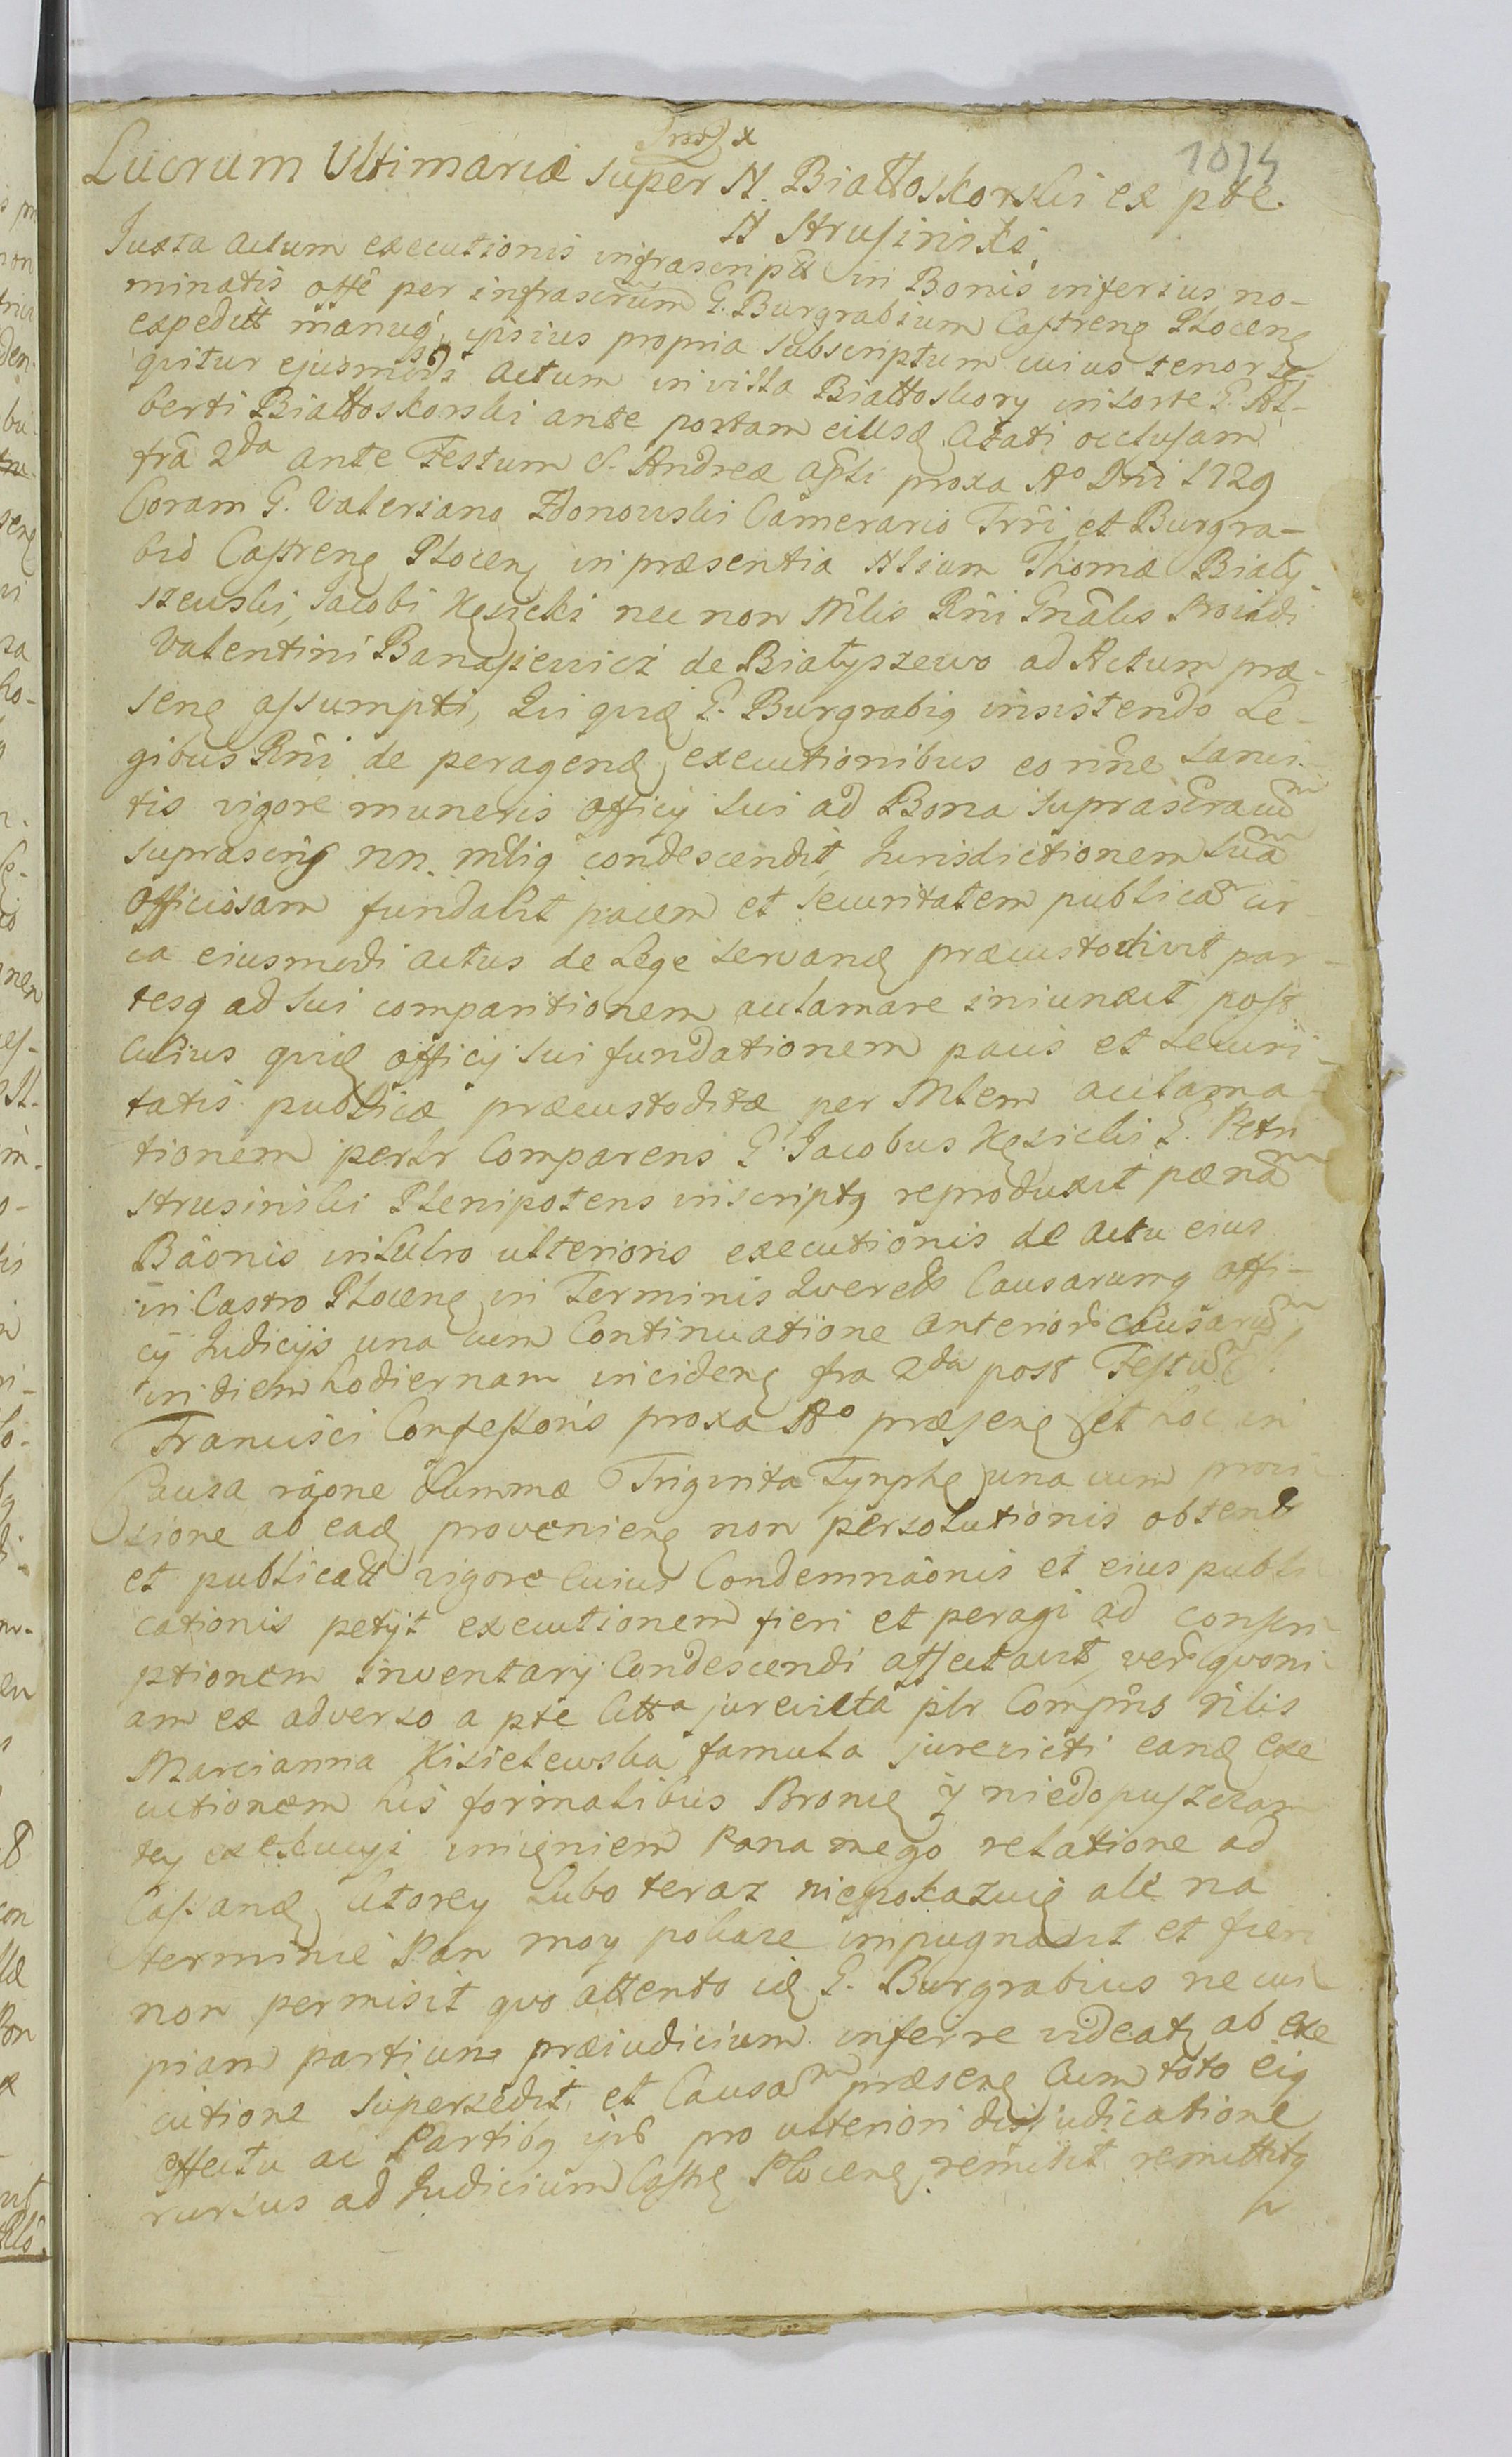 1014
Lucrum Ultimariæ super N. Białłoskorski ex pte
N Strusinski
Juxta actum executionis infrascript in Bonis inferius no-
minatis offê per infrascrûm G. Burgrabium Castren Płocen
expeditt manuq ipsius propria subscriptum cuius tenor se-
quitur ejusmodi Actum in villa Białłoskory in sorte G. Al-
berti Białłoskorski ante portam eiusd Citati occlusam
frâ 2da ante Festum S. Andreæ apli proxa Ao Dni 1729
Coram G. Valeriano Zdonowski Camerario Trri et Burgra-
bio Castren Płocen in præsentia Nlium Thomæ Biały-
szewski, Jacobi Kęsicki nec non Mlis Rni Gnâlis Providi
Valentini Banasiewicz de Białyszewo ad Actum præ-
sen assumpti, Qui quid G. Burgrabiq insistendo Le-
gibus Rni de peragend executionibus eo nne sanci-
tis vigore muneris officij sui ad Bona suprascrauđ
suprascrip nn. mlig condescendit, Jurisdictionem suam
officiosam fundavit pacem et securitatem publicam cir-
ca eiusmodi actus de Lege servand præcustodivit par-
tesq ad sui comparitionem acclamare iniunxit, post
cuius quid officij sui fundationem pacis et securi-
tatis publicæ præcustoditæ per Mlem acclama-
tionem perlr Comparens G. Jacobus Kęsicki G. Petri
Strusinski Plenipotens inscriptq reproduxit pænam
Bâonis in lucro ulterioris executionis de actu eius
in Castro Płocen in Terminis Querel Causarumq offi-
cij Judicijs una cum Continuatione anterior causarum
in diem hodiernam inciden fra 2da post Festum S.
Francisci Confessoris proxa Ao præsen et hoc in
Causa râone summæ Triginta Tynphe una cum provi-
sione ab ead provenien non persolutionis obtent
et publicatt vigore cuius Condemnâonis et eius publi-
cationis petijt executionem fieri et peragi ad conscri-
ptionem Inventarij Condescendi affectavit, verum quoni-
am ex adverso a pte Citta jurevicta plr Comprns nlis
Marcianna Kisielewska famula jurevicti eand exe-
cutionem his formalibus Bronię y niedopuszczam
tey exekucyi imieniem Pana mego relatione ad
Cassand ktorey lubo teraz niepokazuię ale na
terminie Pan moy pokaze impugnavit et fieri
non permisit quo attento id G. Burgrabius ne cui-
piam partium præiudicium inferre videatq ab exe-
cutione supersedit, et Causam præsen Cum toto eiq
effectu ac Partibq ijs pro ulteriori disjudicatione
rursus ad Judicium Castr Płocen remisit remittitq